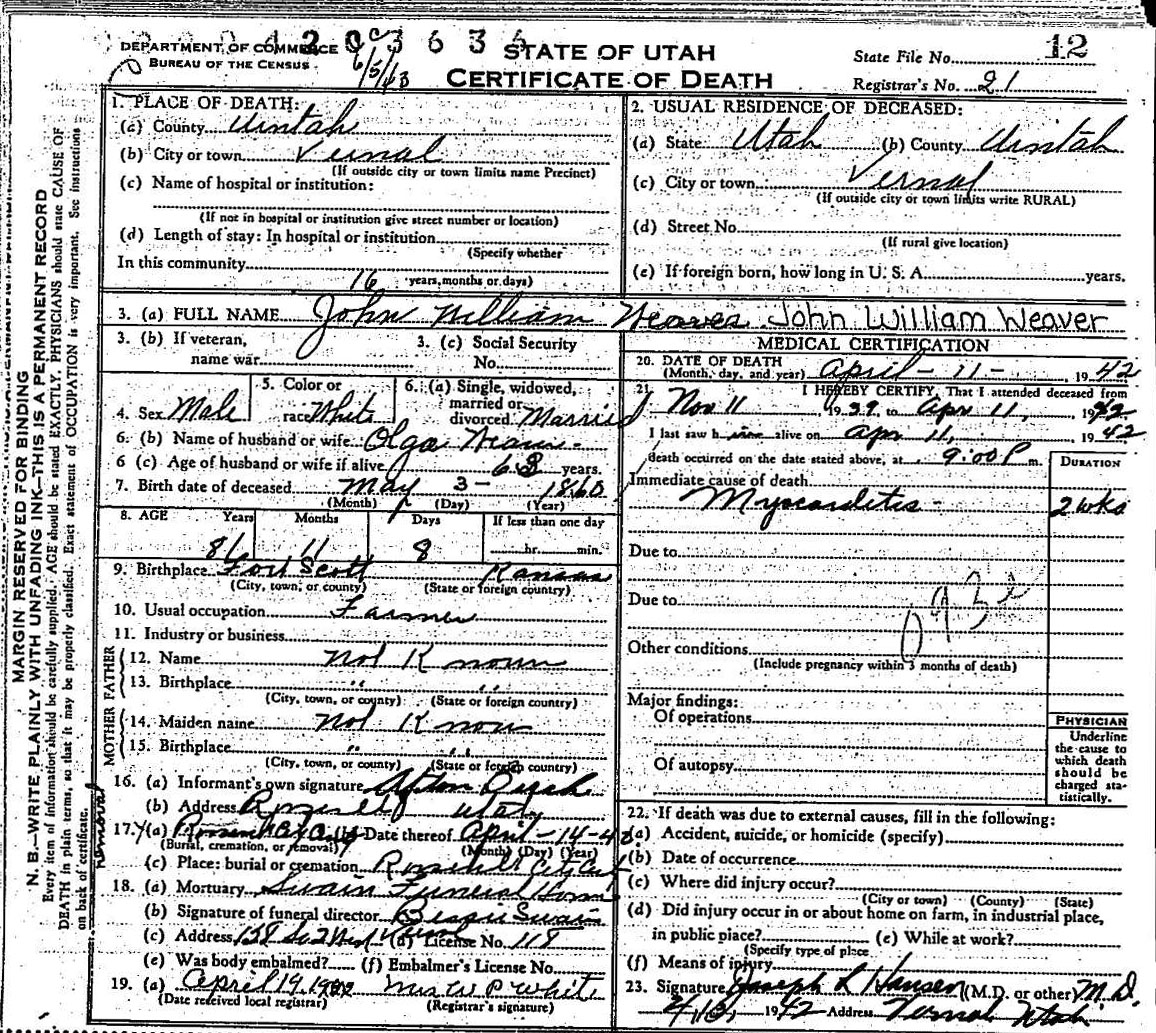 203636
DEPARTMENT OF COMMERCE
BUREAU OF THE CENSUS
6/5/63
STATE OF UTAH
CERTIFICATE OF DEATH
State File No. 12
Registrar's No. 21
MARGIN RESERVED FOR BINDING
N. B.—WRITE PLAINLY WITH UNFADING INK—THIS IS A PERMANENT RECORD
Every item of information should be carefully supplied. AGE should be stated EXACTLY. PHYSICIANS should state CAUSE OF
DEATH in plain terms, so that it may be properly classified. Exact statement of OCCUPATION is very important. See instructions
on back of certificate.
1. PLACE OF DEATH:
(a) County Uintah
(b) City or town Vernal
(If outside city or town limits name Precinct)
(c) Name of hospital or institution:
(If not in hospital or institution give street number or location)
(d) Length of stay: In hospital or institution
(Specify whether
In this community 16
years, months or days)
2. USUAL RESIDENCE OF DECEASED:
(a) State Utah (b) County Uintah
(c) City or town Vernal
(If outside city or town limits write RURAL)
(d) Street No.
(If rural give location)
(e) If foreign born, how long in U. S. A. years.
3. (a) FULL NAME John William Weaver John William Weaver
3. (b) If veteran,
name war
3. (c) Social Security
No.
4. Sex Male
5. Color or
race White
6. (a) Single, widowed,
married or
divorced Married
6. (b) Name of husband or wife Olga Weaver
6 (c) Age of husband or wife if alive 63 years.
7. Birth date of deceased May 3 - 1860
(Month) (Day) (Year)
8. AGE Years Months Days If less than one day
81 11 8 hr. min.
9. Birthplace Fort Scott Kansas
(City, town, or county) (State or foreign country)
10. Usual occupation Farmer
11. Industry or business
FATHER
12. Name Not Known
13. Birthplace " "
(City, town, or county) (State or foreign country)
MOTHER
14. Maiden name Not Know
15. Birthplace " "
(City, town, or county) (State or foreign country)
16. (a) Informant's own signature Afton
(b) Address Utah
17. (a) (b) Date thereof April-14-42
(Burial, cremation, or removal) (Month) (Day) (Year)
removal
(c) Place: burial or cremation
18. (a) Mortuary Swain Funeral Home
(b) Signature of funeral director Bessie Swain
(c) Address 138 So 2 West Vernal (d) License No. 118
(e) Was body embalmed? (f) Embalmer's License No.
19. (a) April 19, Mrs W P White
(Date received local registrar) (Registrar's signature)
MEDICAL CERTIFICATION
20. DATE OF DEATH
(Month, day, and year) April - 11 - 1942
21. I HEREBY CERTIFY, That I attended deceased from
Nov 11 1939 to Apr 11, 1942
I last saw him alive on Apr 11, 1942
death occurred on the date stated above, at 9:00 P m.
DURATION
Immediate cause of death
Myocarditis - 2 wks
Due to
Due to
093
Other conditions
(Include pregnancy within 3 months of death)
Major findings:
Of operations
Of autopsy
PHYSICIAN
Underline
the cause to
which death
should be
charged sta-
tistically.
22. If death was due to external causes, fill in the following:
(a) Accident, suicide, or homicide (specify)
(b) Date of occurrence
(c) Where did injury occur?
(City or town) (County) (State)
(d) Did injury occur in or about home on farm, in industrial place,
in public place? (e) While at work?
(Specify type of place
(f) Means of injury
23. Signature Joseph L Hansen (M.D. or other) M.D.
1942 Address Vernal Utah